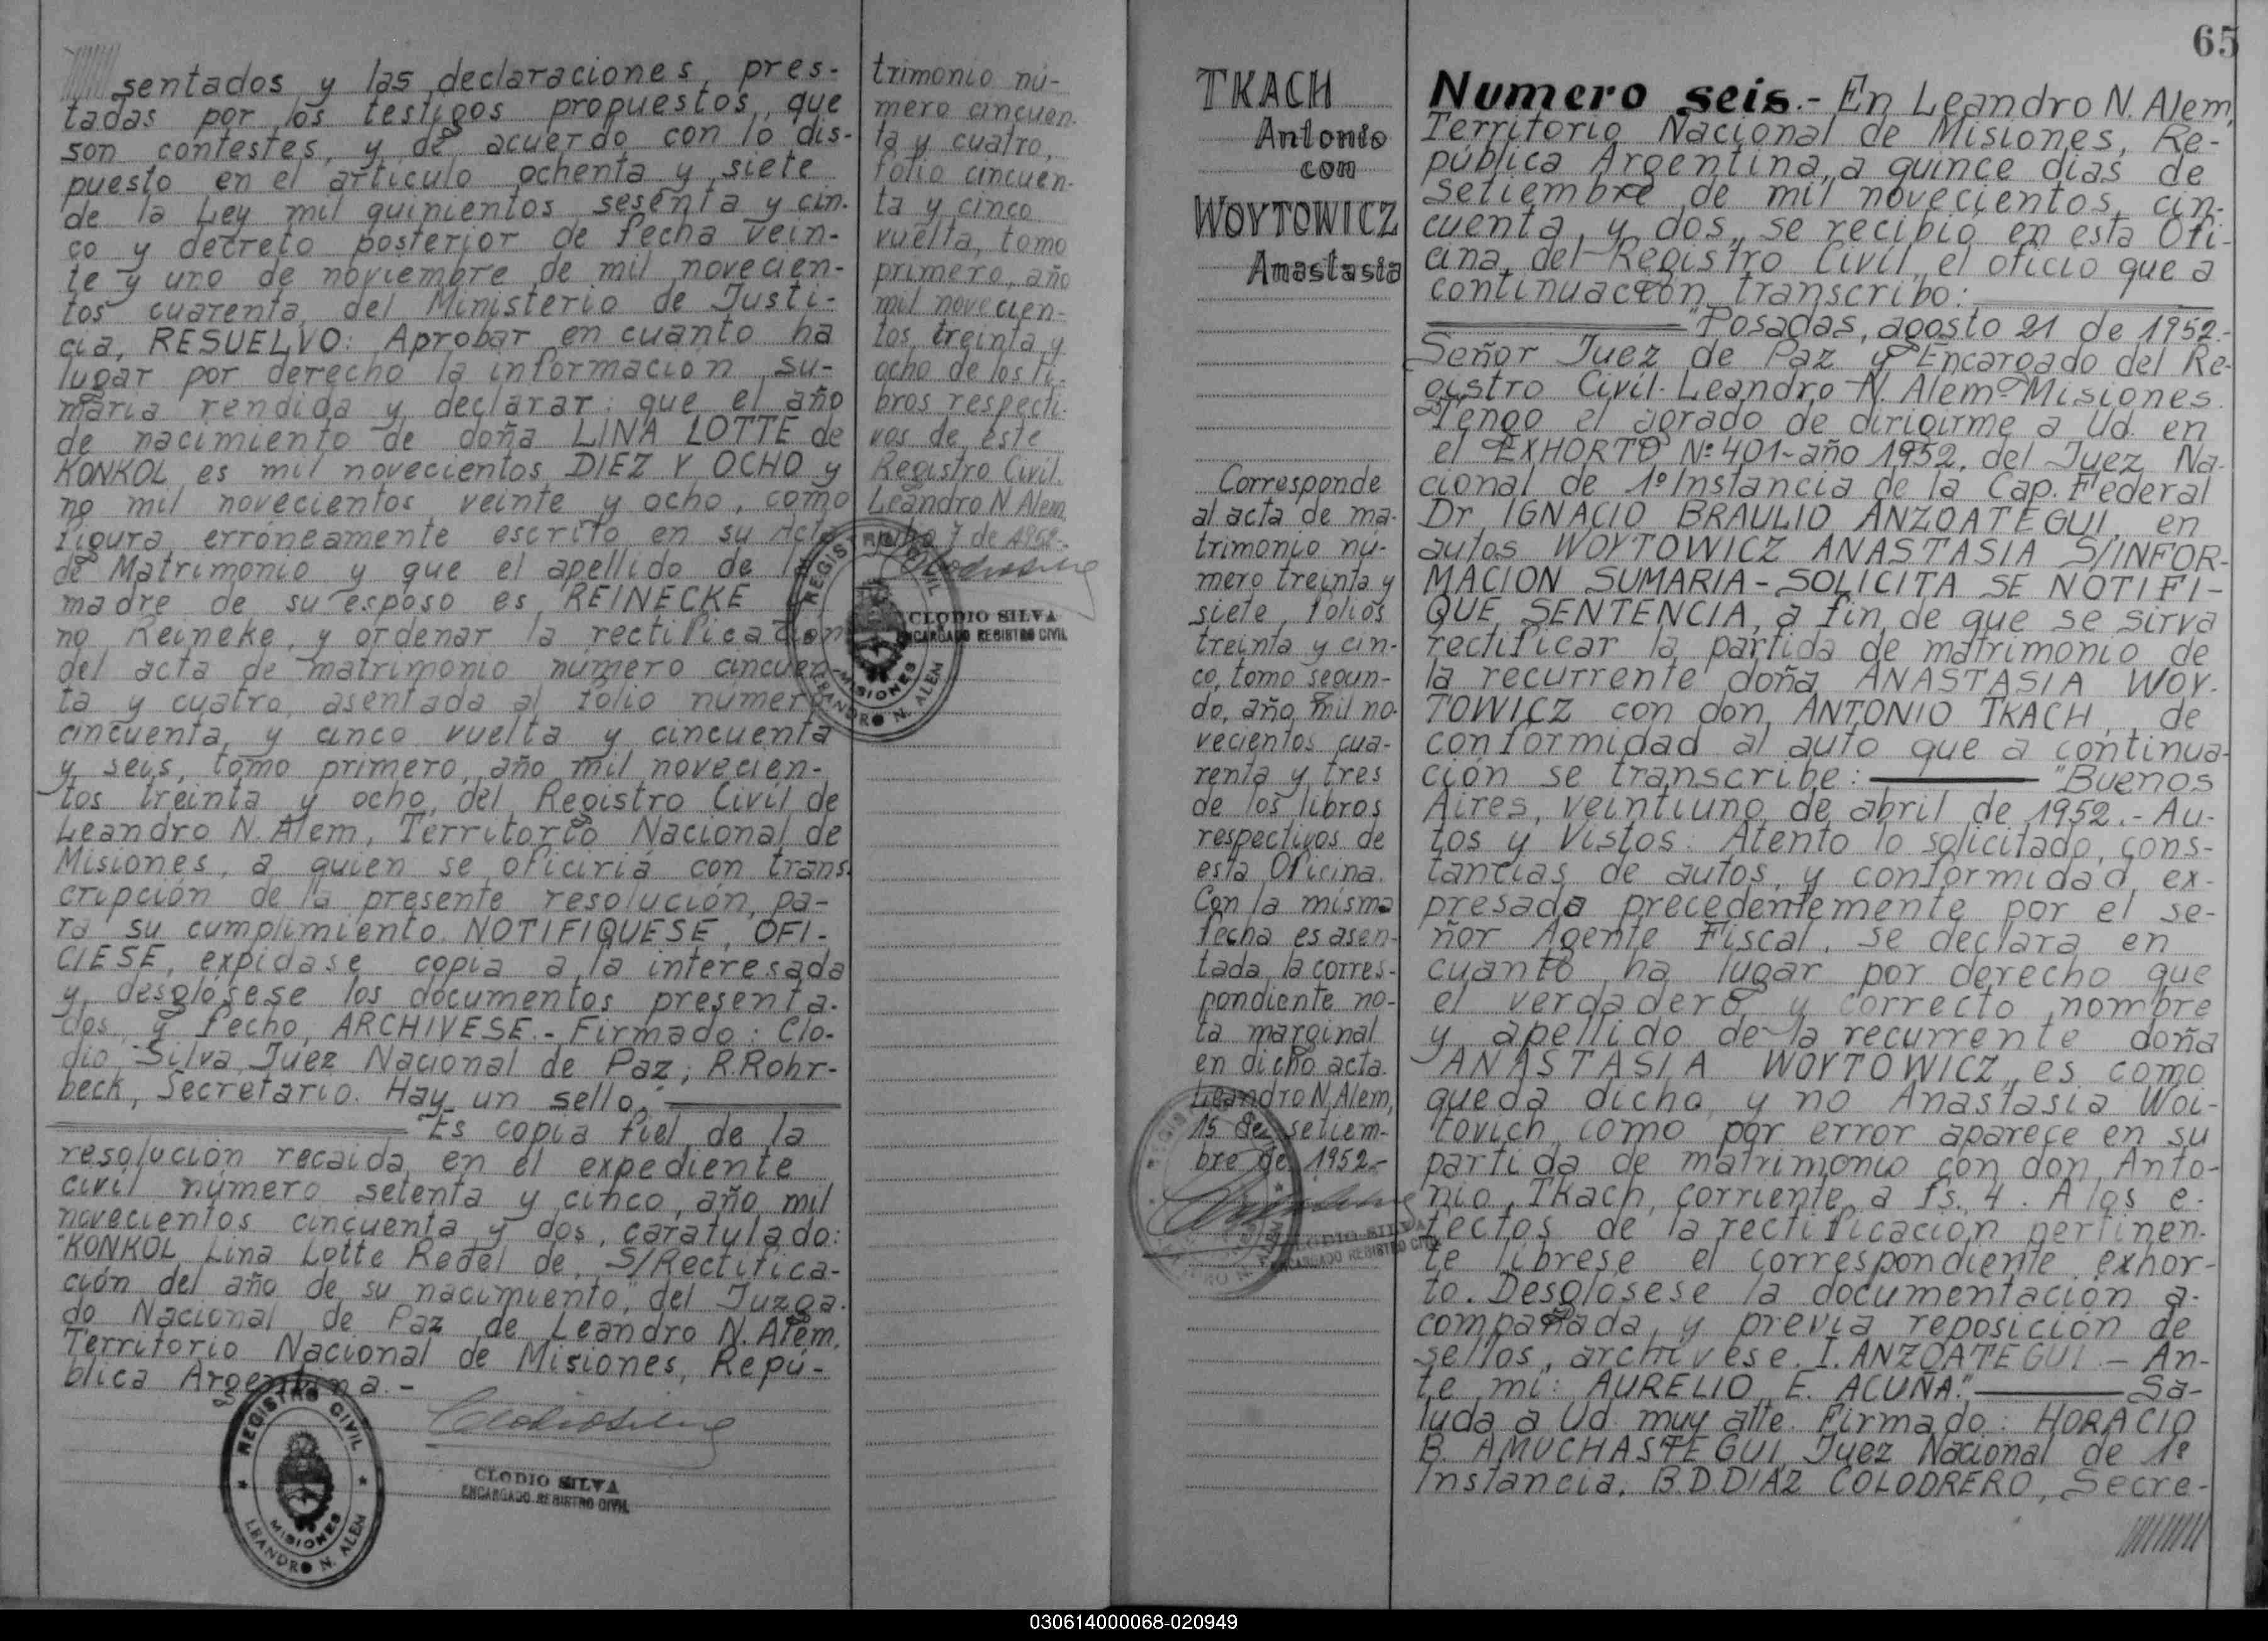 sentados y las declaraciones, pres-
tadas por los testigos propuestos, que
son contestes, y de acuerdo con lo dis-
puesto en el artículo ochenta y siete
de la Ley mil quinientos sesenta y cin-
co y decreto posterior de fecha vein-
te y uno de noviembre de mil novecien-
tos cuarenta, del Ministerio de Justi-
cia, RESUELVO: Aprobar en cuanto ha
lugar por derecho la información su-
maria rendida y declarar: que el año
de nacimiento de doña LINA LOTTE de
KONKOL es mil novecientos DIEZ Y OCHO y
no mil novecientos veinte y ocho, como
figura erróneamente escrito en su Acta
de Matrimonio y que el apellido de la
madre de su esposo es REINECKE
no Reineke, y ordenar la rectificación
del acta de matrimonio número cincuen
ta y cuatro, asentada al folio número
cincuenta y cinco vuelta y cincuenta
y seis, tomo primero, año mil novecien-
tos treinta y ocho, del Registro Civil de
Leandro N. Alem, Territorio Nacional de
Misiones, a quien se oficiriá con trans-
cripción de la presente resolución, pa-
ra su cumplimiento. NOTIFIQUESE, OFI-
CIESE, expídase copia a la interesada
y desglósese los documentos presenta-
dos, y fecho, ARCHIVESE.- Firmado: Clo-
dio Silva, Juez Nacional de Paz; R. Rohr-
beck, Secretario. Hay un sello."
"Es copia fiel de la
resolución recaida en el expediente
civil número setenta y cinco, año mil
novecientos cincuenta y dos, caratulado:
"KONKOL Lina Lotte Redel de, S/Rectifica-
ción del año de su nacimiento," del Juzga-
do Nacional de Paz de Leandro N. Alem,
Territorio Nacional de Misiones, Repú-
blica Argentina.-
REGISTRO CIVIL
MISIONES
LEANDRO N. ALEM
CLODIO SILVA
ENCARGADO REGISTRO CIVIL
trimonio nú-
mero cincuen-
ta y cuatro,
folio cincuen-
ta y cinco
vuelta, tomo
primero, año
mil novecien-
tos treinta y
ocho de los li-
bros respecti-
vos de este
Registro Civil.
Leandro N. Alem,
7 de 1952.-
REGISTRO CIVIL
MISIONES
LEANDRO N. ALEM
CLODIO SILVA
ENCARGADO REGISTRO CIVIL
65
TKACH
Antonio
con
WOYTOWICZ
Anastasia
Corresponde
al acta de ma-
trimonio nú-
mero treinta y
siete, folios
treinta y cin-
co, tomo segun-
do, año mil no-
vecientos cua-
renta y tres
de los libros
respectivos de
esta Oficina.
Con la misma
fecha es asen-
tada la corres-
pondiente no-
ta marginal
en dicho acta.
Leandro N. Alem,
15 de setiem-
bre de 1952.-
CLODIO SILVA
ENCARGADO REGISTRO CIVIL
Numero seis.- En Leandro N. Alem,
Territorio Nacional de Misiones, Re-
pública Argentina, a quince días de
setiembre de mil novecientos cin-
cuenta y dos, se recibió en esta Ofi-
cina del Registro Civil, el oficio que a
continuación transcribo:
"Posadas, agosto 21 de 1952.-
Señor Juez de Paz y Encargado del Re-
gistro Civil- Leandro N. Alem- Misiones.
Tengo el agrado de dirigirme a Ud. en
el EXHORTO Nº 401- año 1952, del Juez Na-
cional de 1º Instancia de la Cap. Federal
Dr. IGNACIO BRAULIO ANZOATEGUI, en
autos WOYTOWICZ ANASTASIA S/INFOR-
MACION SUMARIA - SOLICITA SE NOTIFI-
QUE SENTENCIA, a fin de que se sirva
rectificar la partida de matrimonio de
la recurrente doña ANASTASIA WOY-
TOWICZ con don ANTONIO TKACH, de
conformidad al auto que a continua-
ción se transcribe: "Buenos
Aires, veintiuno de abril de 1952.- Au-
tos y Vistos. Atento lo solicitado, cons-
tancias de autos, y conformidad ex-
presada precedentemente por el se-
ñor Agente Fiscal, se declara en
cuanto ha lugar por derecho que
el verdadero y correcto nombre
y apellido de la recurrente doña
ANASTASIA WOYTOWICZ, es como
queda dicho y no Anastasia Woi-
tovich, como por error aparece en su
partida de matrimonio con don Anto-
nio Tkach, corriente a fs. 4. A los e-
fectos de la rectificación pertinen-
te líbrese el correspondiente exhor-
to. Desglósese la documentación a-
compañada, y previa reposición de
sellos, archívese. I. ANZOATEGUI.- An-
te mí: AURELIO E. ACUÑA." Sa-
luda a Ud. muy atte. Firmado: HORACIO
B. AMUCHASTEGUI, Juez Nacional de 1º
Instancia. B. D. DIAZ COLODRERO, Secre-
030614000068-020949